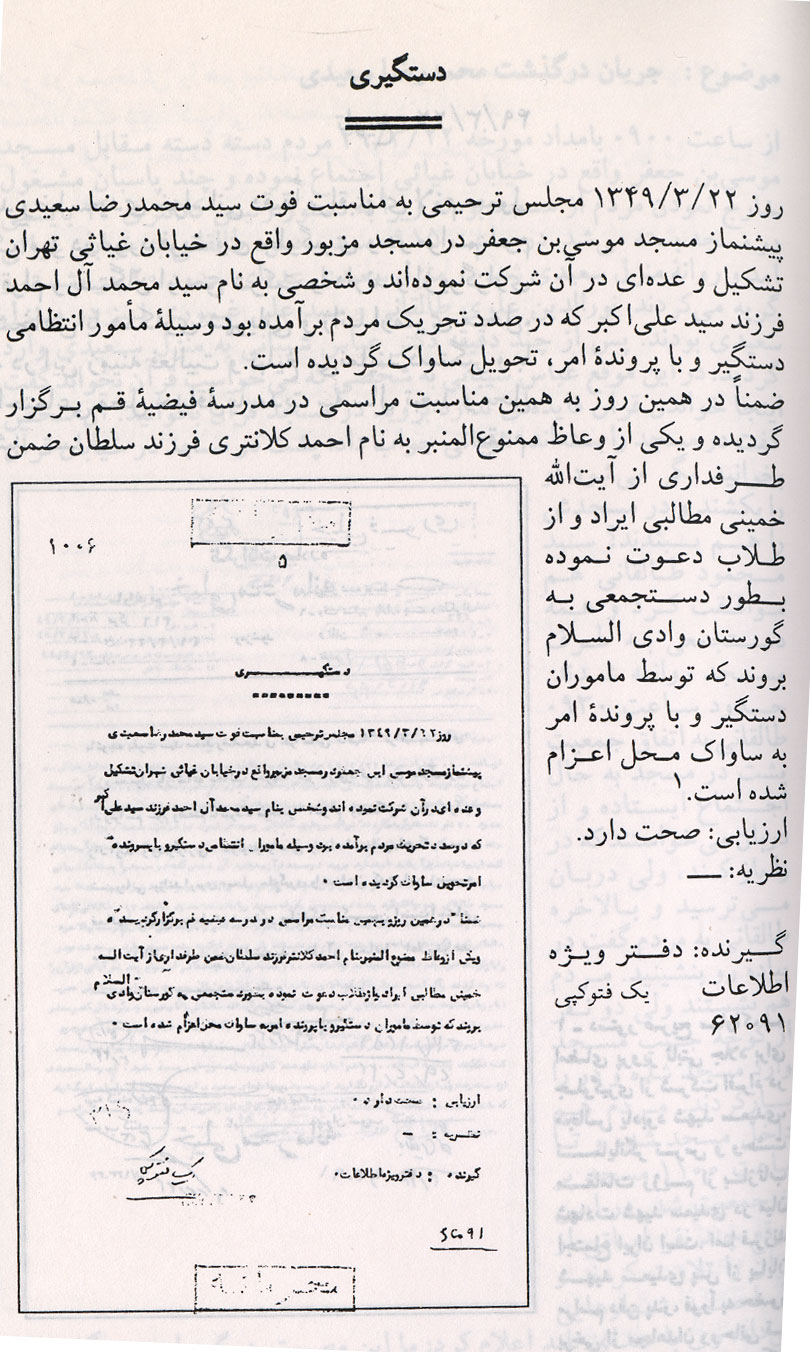 دستگیری
روز ۱۳۴۹/۳/۲۲ مجلس ترحیمی به مناسبت فوت سید محمدرضا سعیدی
پیشنماز مسجد موسی‌بن جعفر در مسجد مزبور واقع در خیابان غیاثی تهران
تشکیل و عده‌ای در آن شرکت نموده‌اند و شخصی به نام سید محمد آل احمد
فرزند سید علی‌اکبر که در صدد تحریک مردم برآمده بود وسیلهٔ مأمور انتظامی
دستگیر و با پروندهٔ امر، تحویل ساواک گردیده است.
ضمناً در همین روز به همین مناسبت مراسمی در مدرسهٔ فیضیهٔ قم برگزار
گردیده و یکی از وعاظ ممنوع‌المنبر به نام احمد کلانتری فرزند سلطان ضمن
طرفداری از آیت‌الله
خمینی مطالبی ایراد و از
طلاب دعوت نموده
بطور دستجمعی به
گورستان وادی السلام
بروند که توسط ماموران
دستگیر و با پروندهٔ امر
به ساواک محل اعزام
شده است.۱
ارزیابی: صحت دارد.
نظریه: —
گیرنده: دفتر ویژه
اطلاعات یک فتوکپی
۶۲۰۹۱
۱۰۰۶
۵
دستگیری
روز ۱۳۴۹/۳/۲۲ مجلس ترحیمی بمناسبت فوت سید محمد رضا سعیدی
پیشنماز مسجد موسی ابن جعفر در مسجد مزبور واقع در خیابان غیاثی تهران تشکیل
و عده ای در آن شرکت نموده اند و شخصی بنام سید محمد آل احمد فرزند سید علی اکبر
که در صدد تحریک مردم برآمده بود وسیله مامور انتظامی دستگیر و با پرونده
امر تحویل ساواک گردیده است .
ضمنا در همین روز بهمین مناسبت مراسمی در مدرسه فیضیه قم برگزار گردیده
از وعاظ ممنوع المنبر بنام احمد کلانتر فرزند سلطان ضمن طرفداری از آیت اله
خمینی مطالبی ایراد و از طلاب دعوت نموده بطور دستجمعی به گورستان وادی السلام
بروند که توسط ماموران دستگیر و با پرونده امر به ساواک محل اعزام شده است .
ارزیابی : صحت دارد .
نظریه : —
گیرنده : دفتر ویژه اطلاعات .
یک فتوکپی
۶۲۰۹۱